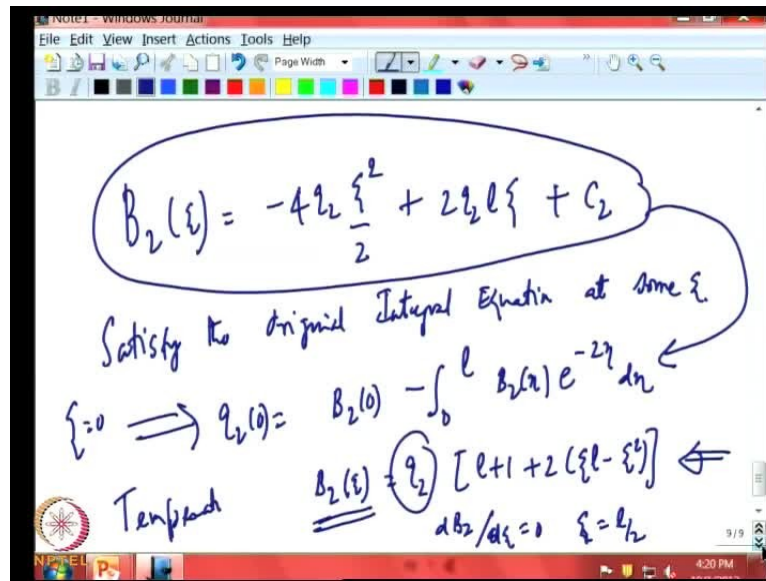 Note1 - Windows Journal
File Edit View Insert Actions Tools Help
Page Width
B I
B₂(ξ) = -4q₂ ξ²/2 + 2q₂lξ + C₂
Satisfy the original Integral Equation at some ξ.
ξ=0 ⟹ q₂(0) = B₂(0) - ∫₀^l B₂(η) e^{-2η} dη
B₂(ξ) = q₂ [l+1+2(ξl-ξ²)] ⇐
dB₂/dξ=0 ξ=l/2
9/9
NPTEL
4:20 PM